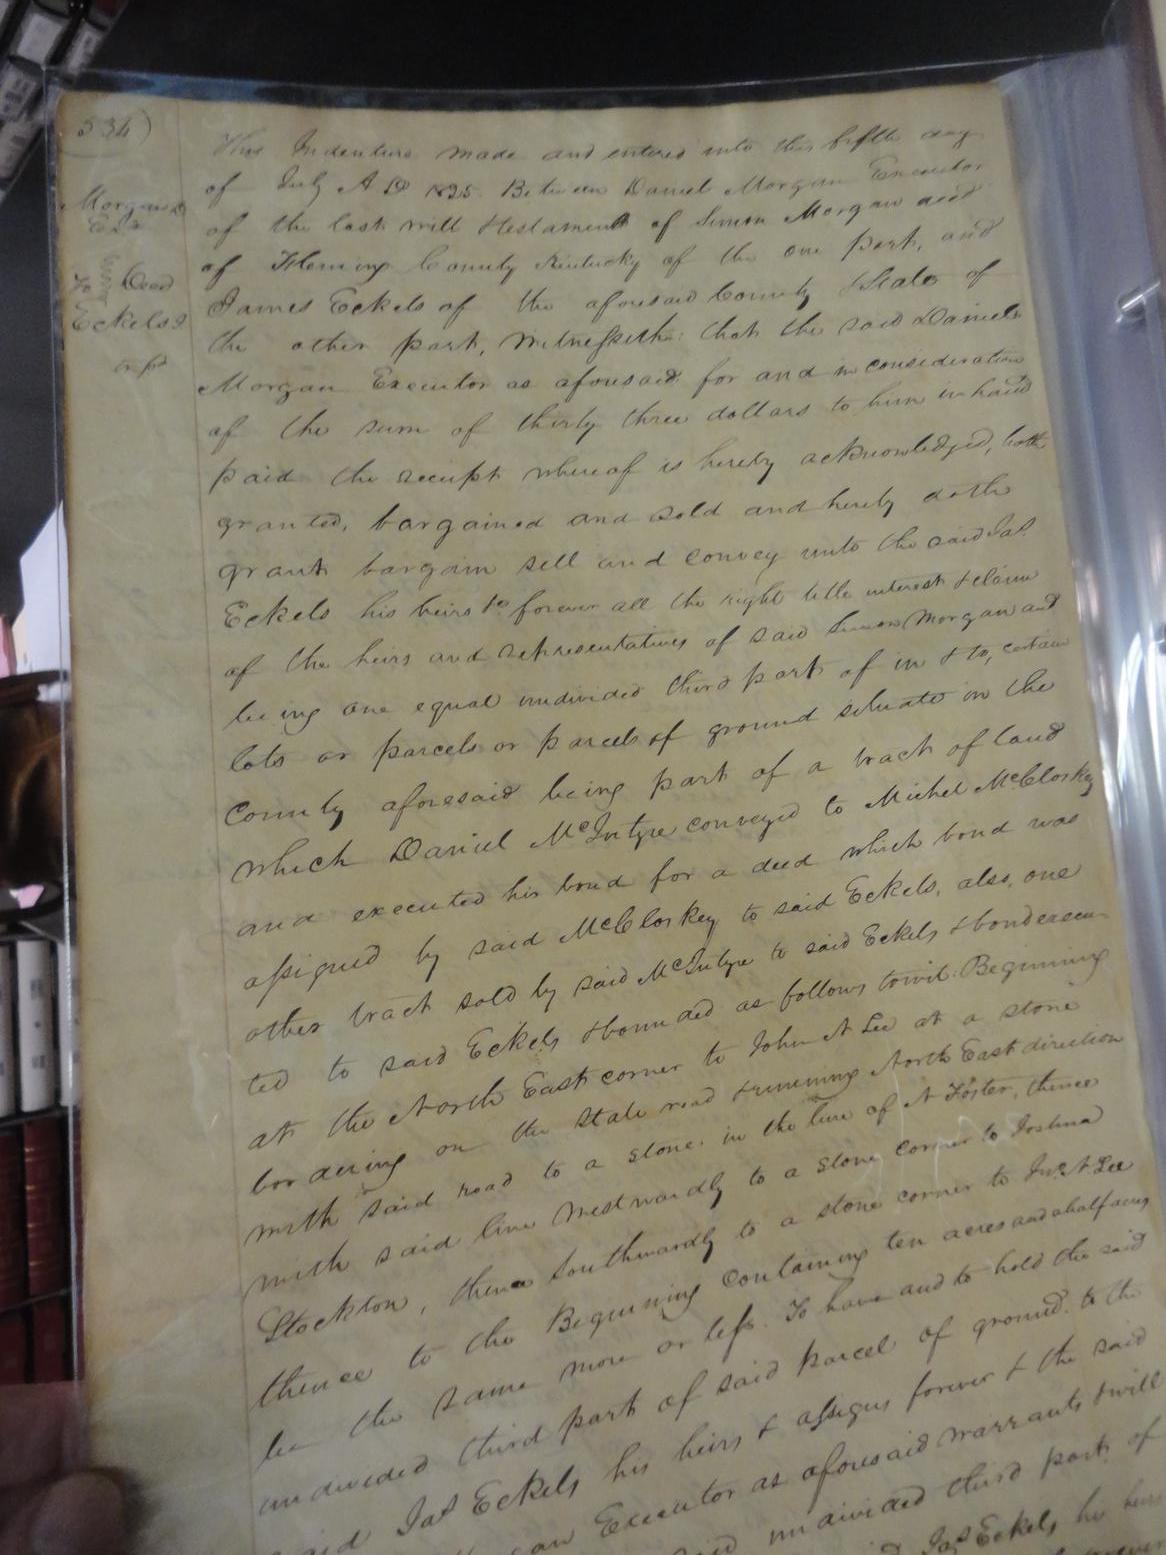 534)
Morgan's
Exr
To Deed
Eckels J
This Indenture made and entered into this fifth day
of July A D 1835. Between Daniel Morgan Executor
of the last will & testament of Simon Morgan decd
of Fleming County Kentucky of the one part, and
James Eckels of the aforesaid County & State of
the other part, Witnesseth: that the said Daniel
Morgan Executor as aforesaid for and in consideration
of the sum of thirty three dollars to him in hand
paid the receipt whereof is hereby acknowledged, hath
granted, bargained and sold and hereby doth
grant bargain sell and convey unto the said Jas.
Eckels his heirs &c forever all the right title interest & claim
of the heirs and representatives of said Simon Morgan and
being one equal undivided third part of in & to, certain
lots or parcels or parcels of ground situate in the
County aforesaid being part of a tract of land
which Daniel McIntyre conveyed to Michel McCloskey
and executed his bond for a deed which bond was
assigned by said McCloskey to said Eckels, also, one
other tract sold by said McIntyre to said Eckels & bond execu-
ted to said Eckels & bounded as follows towit: Beginning
at the North East corner to John A Lee at a stone
bordering on the State road & running North East direction
with said road to a stone in the line of A Foster, thence
with said line westwardly to a stone corner to Joshua
Stockton, thence Southwardly to a stone corner to Jno. A. Lee
thence to the Beginning containing ten acres and a half acre
be the same more or less. To have and to hold the said
undivided third part of said parcel of ground. to the
said Jas Eckels his heirs & assigns forever & the said
Executor as aforesaid warrants & will
said undivided third part of
Jas Eckels, his heirs